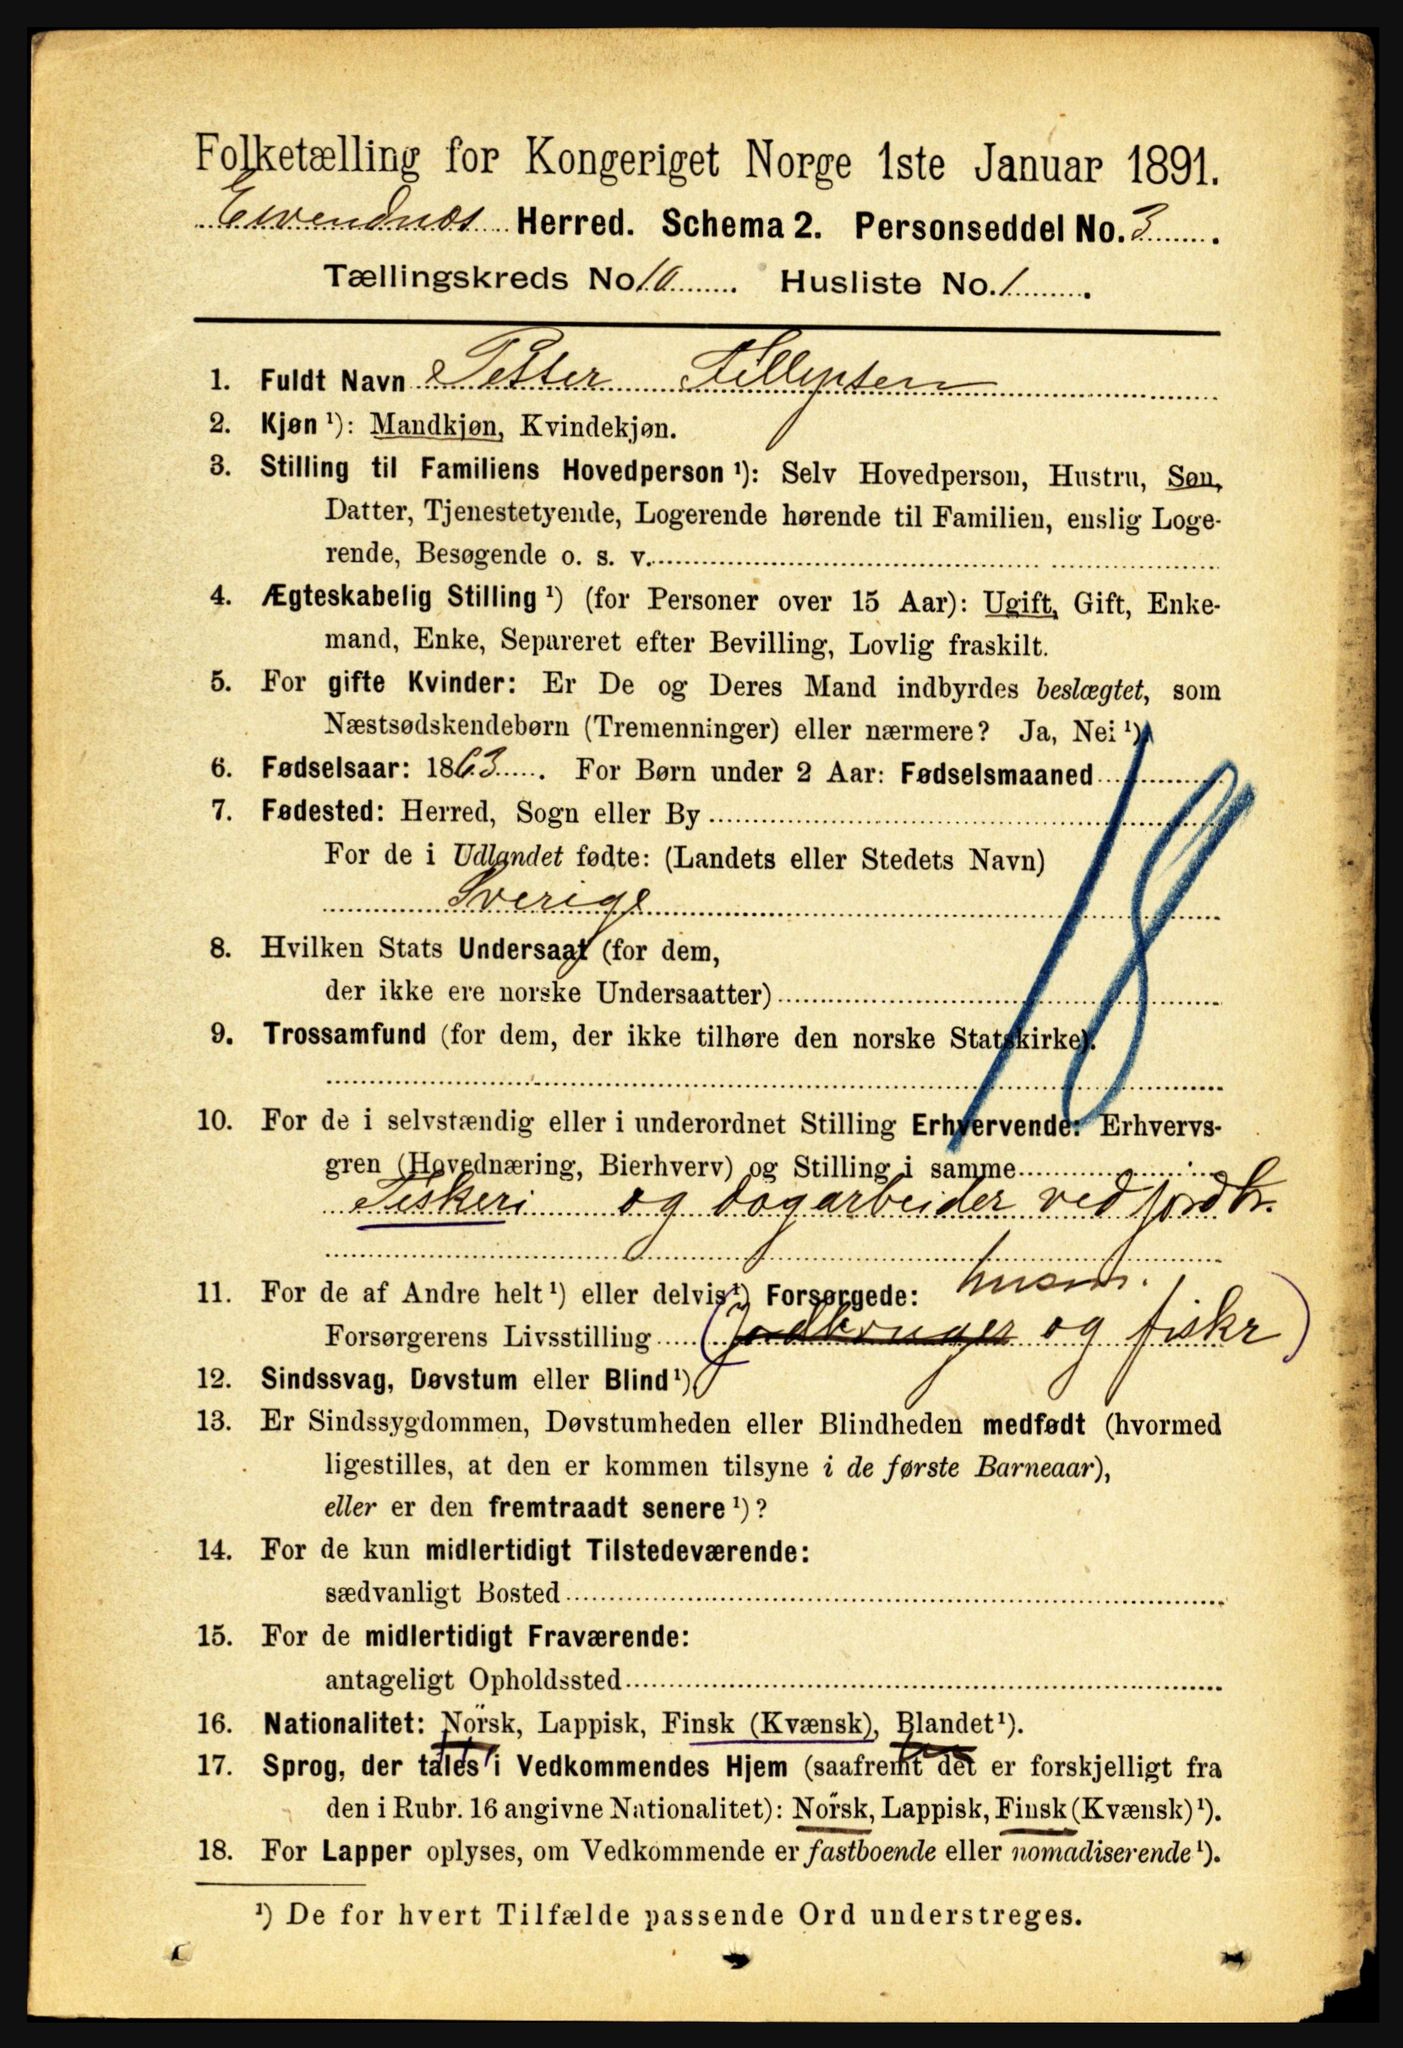 Folketælling for Kongeriget Norge 1ste Januar 1891.
Evendnæs Herred. Schema 2. Personseddel No. 3.
Tællingskreds No 10. Husliste No. 1.
1. Fuldt Navn Petter Fillipsen
2. Kjøn ¹): Mandkjøn, Kvindekjøn.
3. Stilling til Familiens Hovedperson ¹): Selv Hovedperson, Hustru, Søn,
Datter, Tjenestetyende, Logerende hørende til Familien, enslig Loge-
rende, Besøgende o. s. v.
4. Ægteskabelig Stilling ¹) (for Personer over 15 Aar): Ugift, Gift, Enke-
mand, Enke, Separeret efter Bevilling, Lovlig fraskilt.
5. For gifte Kvinder: Er De og Deres Mand indbyrdes beslægtet, som
Næstsødskendebørn (Tremenninger) eller nærmere? Ja, Nei ¹).
6. Fødselsaar: 1863. For Børn under 2 Aar: Fødselsmaaned
7. Fødested: Herred, Sogn eller By
For de i Udlandet fødte: (Landets eller Stedets Navn)
Sverige
18
8. Hvilken Stats Undersaat (for dem,
der ikke ere norske Undersaatter)
9. Trossamfund (for dem, der ikke tilhøre den norske Statskirke).
10. For de i selvstændig eller i underordnet Stilling Erhvervende: Erhvervs-
gren (Hovednæring, Bierhverv) og Stilling i samme
Fiskeri og dagarbeider ved jordbr.
11. For de af Andre helt ¹) eller delvis ¹) Forsørgede: husm.
Forsørgerens Livsstilling (jordbruger og fiskr)
12. Sindssvag, Døvstum eller Blind ¹).
13. Er Sindssygdommen, Døvstumheden eller Blindheden medfødt (hvormed
ligestilles, at den er kommen tilsyne i de første Barneaar),
eller er den fremtraadt senere ¹)?
14. For de kun midlertidigt Tilstedeværende:
sædvanligt Bosted
15. For de midlertidigt Fraværende:
antageligt Opholdssted
16. Nationalitet: Norsk, Lappisk, Finsk (Kvænsk), Blandet ¹).
17. Sprog, der tales i Vedkommendes Hjem (saafremt det er forskjelligt fra
den i Rubr. 16 angivne Nationalitet): Norsk, Lappisk, Finsk (Kvænsk) ¹).
18. For Lapper oplyses, om Vedkommende er fastboende eller nomadiserende ¹).
¹) De for hvert Tilfælde passende Ord understreges.